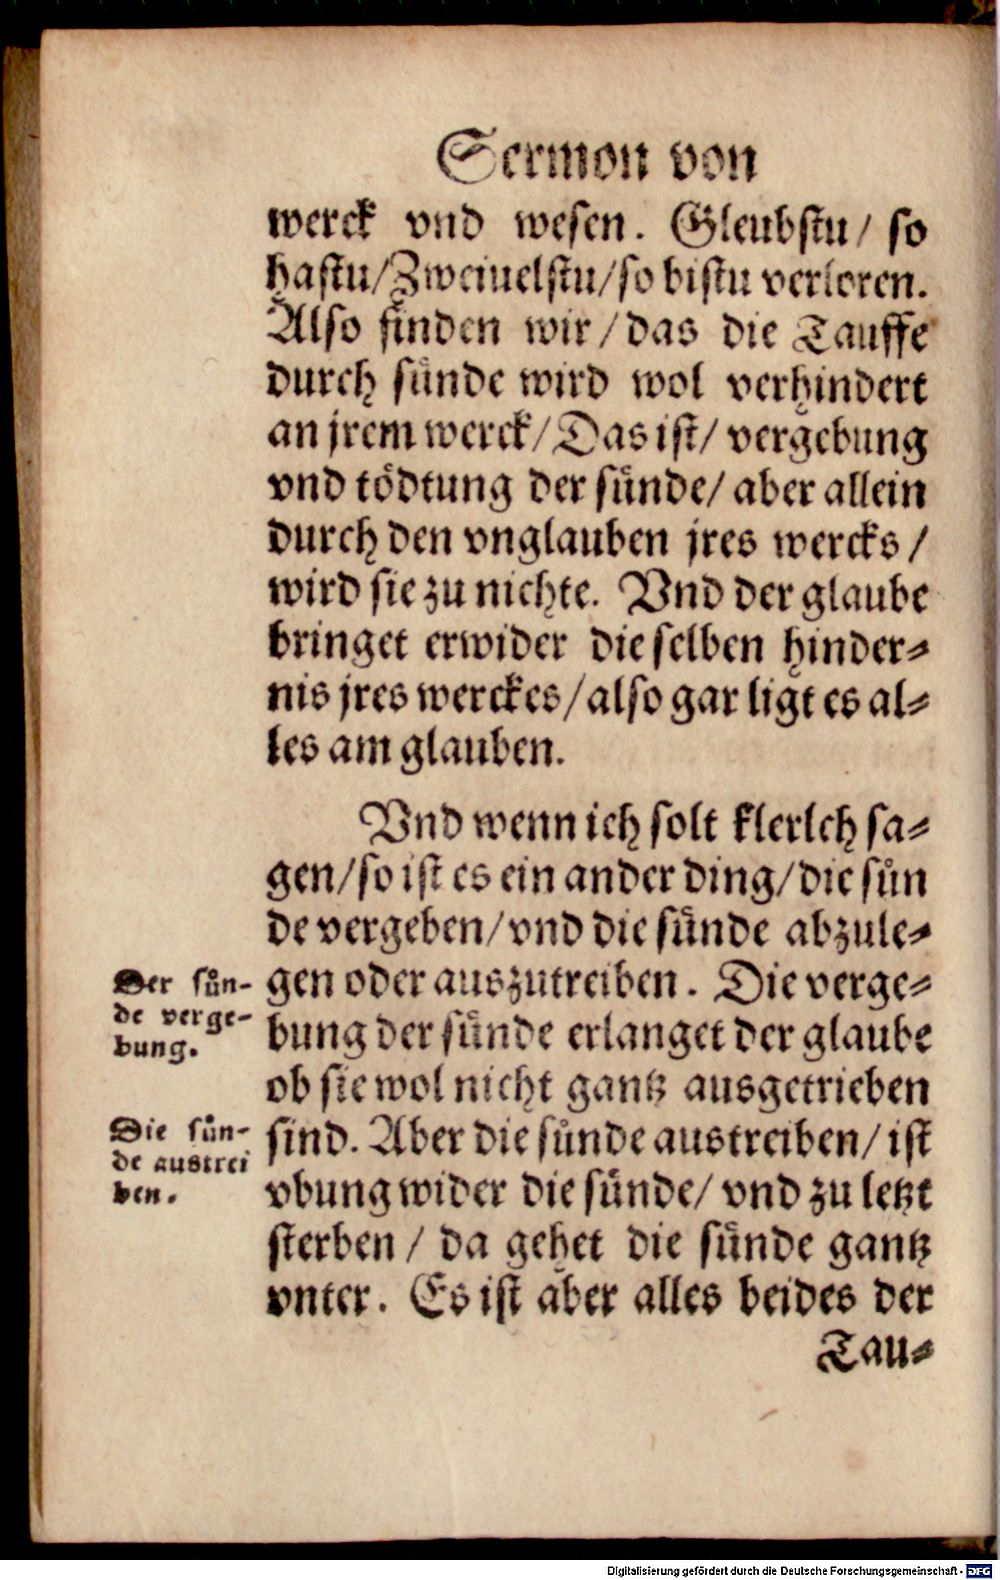 Sermon von
werck vnd wesen. Gleubstu/ so
hastu/Zweiuelstu/so bistu verloren.
Also finden wir/das die Tauffe
durch sünde wird wol verhindert
an jrem werck/Das ist/ vergebung
vnd tödtung der sünde/ aber allein
durch den vnglauben jres wercks/
wird sie zu nichte. Vnd der glaube
bringet erwider die selben hinder-
nis jres werckes/also gar ligt es al-
les am glauben.
Vnd wenn ich solt klerlch sa-
gen/so ist es ein ander ding/die sün
de vergeben/vnd die sünde abzule-
Der sün-
de verge-
bung.
gen oder auszutreiben. Die verge-
bung der sünde erlanget der glaube
ob sie wol nicht gantz ausgetrieben
Die sün-
de austrei
ben.
sind. Aber die sünde austreiben/ist
vbung wider die sünde/ vnd zu letzt
sterben/ da gehet die sünde gantz
vnter. Es ist aber alles beides der
Tau-
Digitalisierung gefördert durch die Deutsche Forschungsgemeinschaft - DFG